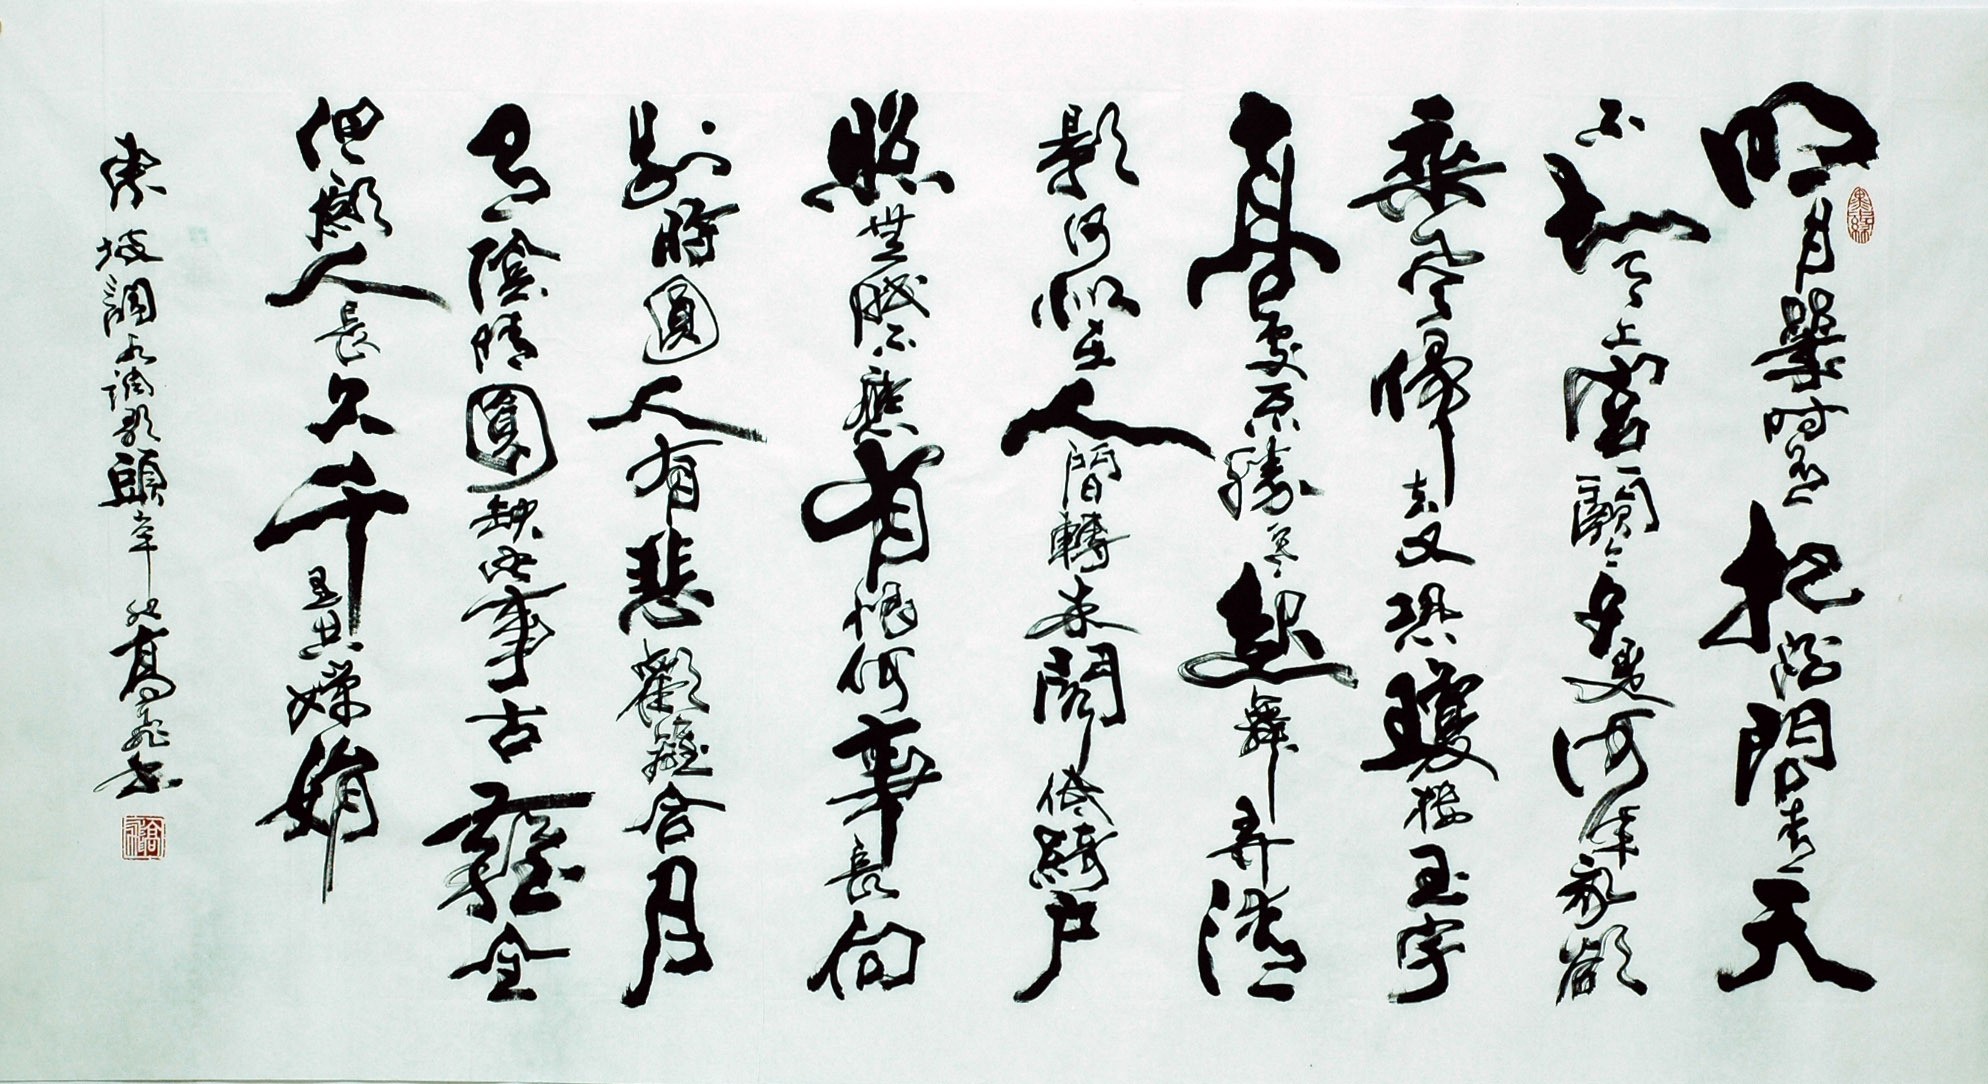 明月幾時有把酒問青天
不知天上宮闕今夕是何年我欲
乘風歸去又恐瓊樓玉宇
高處不勝寒起舞弄清
影何似在人間轉朱閣低綺戶
照無眠不應有恨何事長向
別時圓人有悲歡離合月
有陰晴圓缺此事古難全
但願人長久千里共嬋娟
東坡詞水調歌頭辛卯高飛書